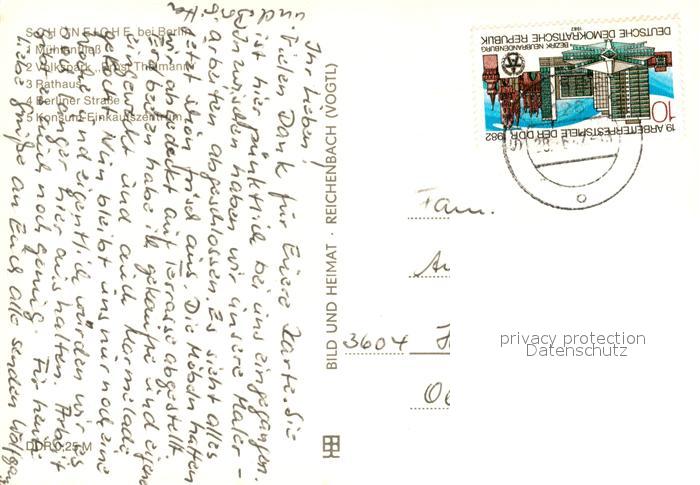 SCHÖNEICHE bei Berlin
1 Mühlenfließ
2 Volkspark „Ernst Thälmann"
3 Rathaus
4 Berliner Straße
5 Konsum-Einkaufszentrum
DDR 0,25 M
Ihr Lieben!
Vielen Dank für Euere Karte. Sie
ist hier pünktlich bei uns eingegangen.
Inzwischen haben wir unsere Maler-
arbeiten abgeschlossen. Es sieht alles
jetzt schön frisch aus. Die Möbel hatten
wir abgedeckt auf Terrasse abgestellt
Erdbeeren habe ich gekauft und eigene
eingeweckt und auch Marmelade
gekocht. Nun bleibt uns nur noch eine
Woche und eigentlich würden wir es
noch länger hier aushalten. Arbeit
gibt es auch noch genug. Für heute
liebe Grüße an Euch alle senden Wolfgang
und
BILD UND HEIMAT · REICHENBACH (VOGTL)
19. ARBEITERFESTSPIELE DER DDR 1982
10
BEZIRK NEUBRANDENBURG
DEUTSCHE DEMOKRATISCHE REPUBLIK
1982
Fam.
3604
privacy protection
Datenschutz